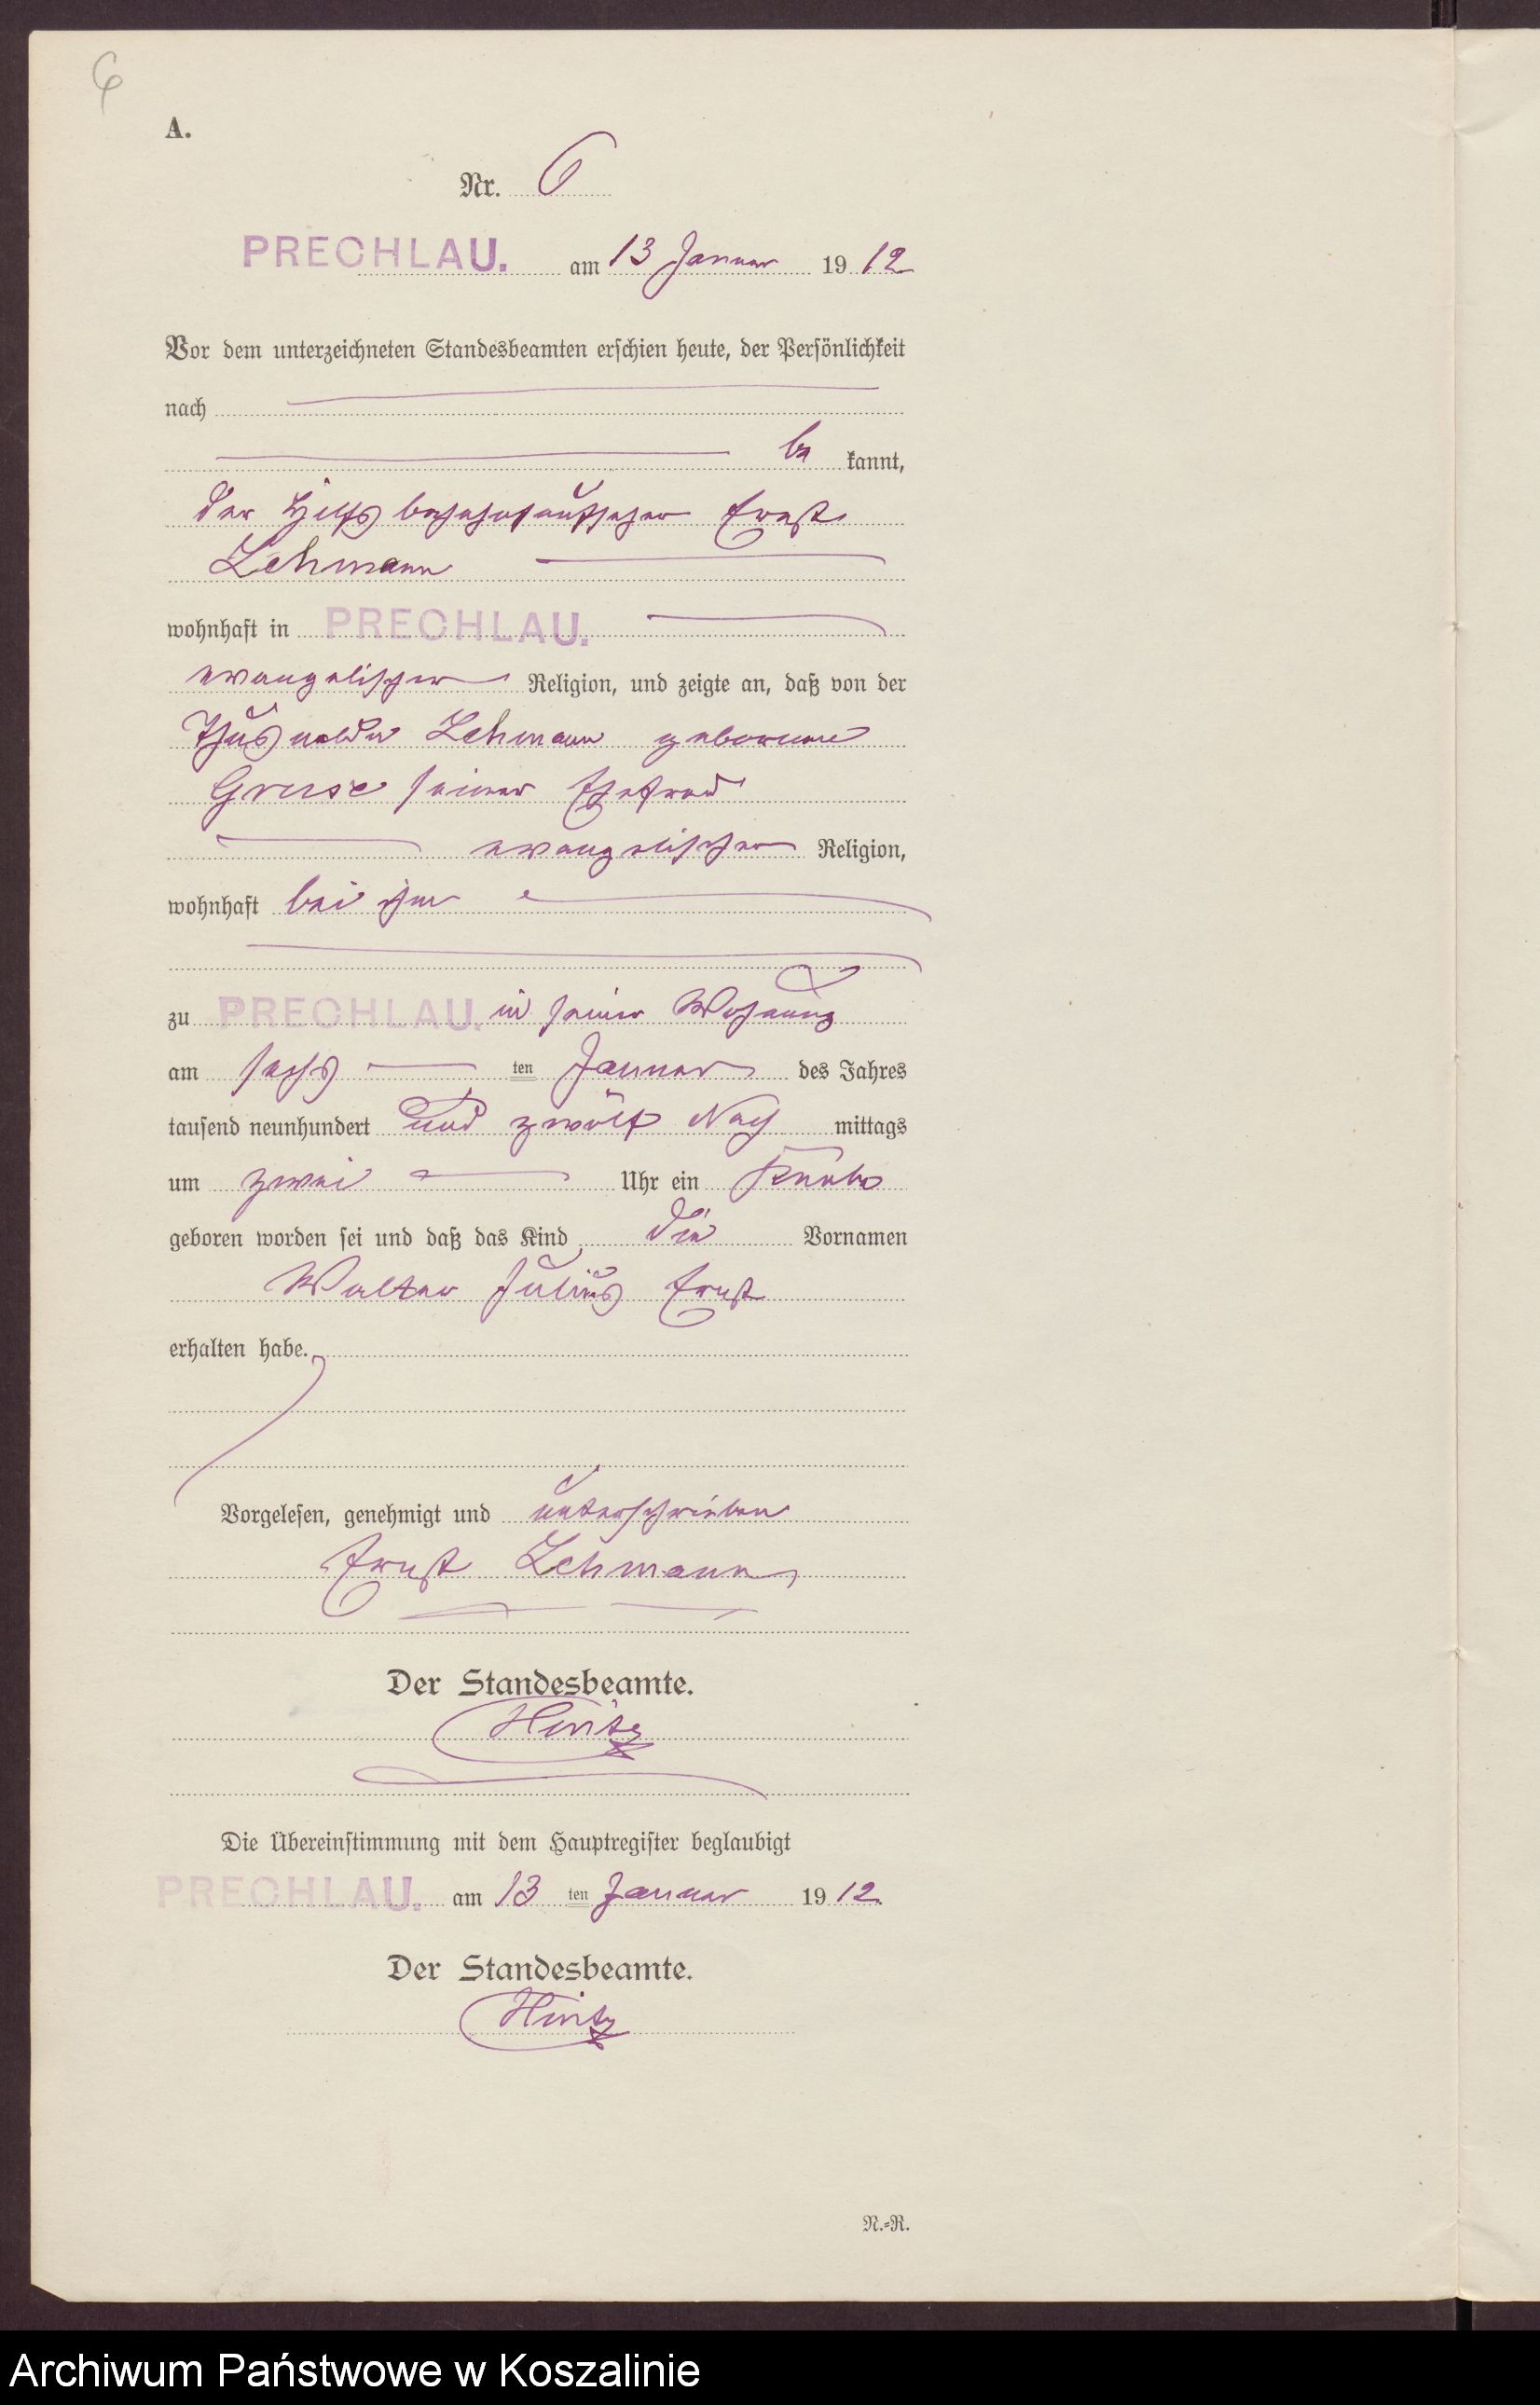 6
A.
Nr. 6
PRECHLAU. am 13 Januar 1912
Vor dem unterzeichneten Standesbeamten erschien heute, der Persönlichkeit
nach
be kannt,
der Hilfsbahnhofaufseher Ernst
Lehmann
wohnhaft in PRECHLAU.
evangelischer Religion, und zeigte an, daß von der
Thusnelda Lehmann geborene
Gruse seiner Ehefrau
evangelischer Religion,
wohnhaft bei ihm
zu PRECHLAU. in seiner Wohnung
am sechs ten Januar des Jahres
tausend neunhundert und zwölf Nach mittags
um zwei Uhr ein Knabe
geboren worden sei und daß das Kind die Vornamen
Walter Julius Ernst
erhalten habe.
Vorgelesen, genehmigt und unterschrieben
Ernst Lehmann
Der Standesbeamte.
Hintz
Die Übereinstimmung mit dem Hauptregister beglaubigt
PRECHLAU. am 13 ten Januar 1912.
Der Standesbeamte.
Hintz
N.=R.
Archiwum Państwowe w Koszalinie